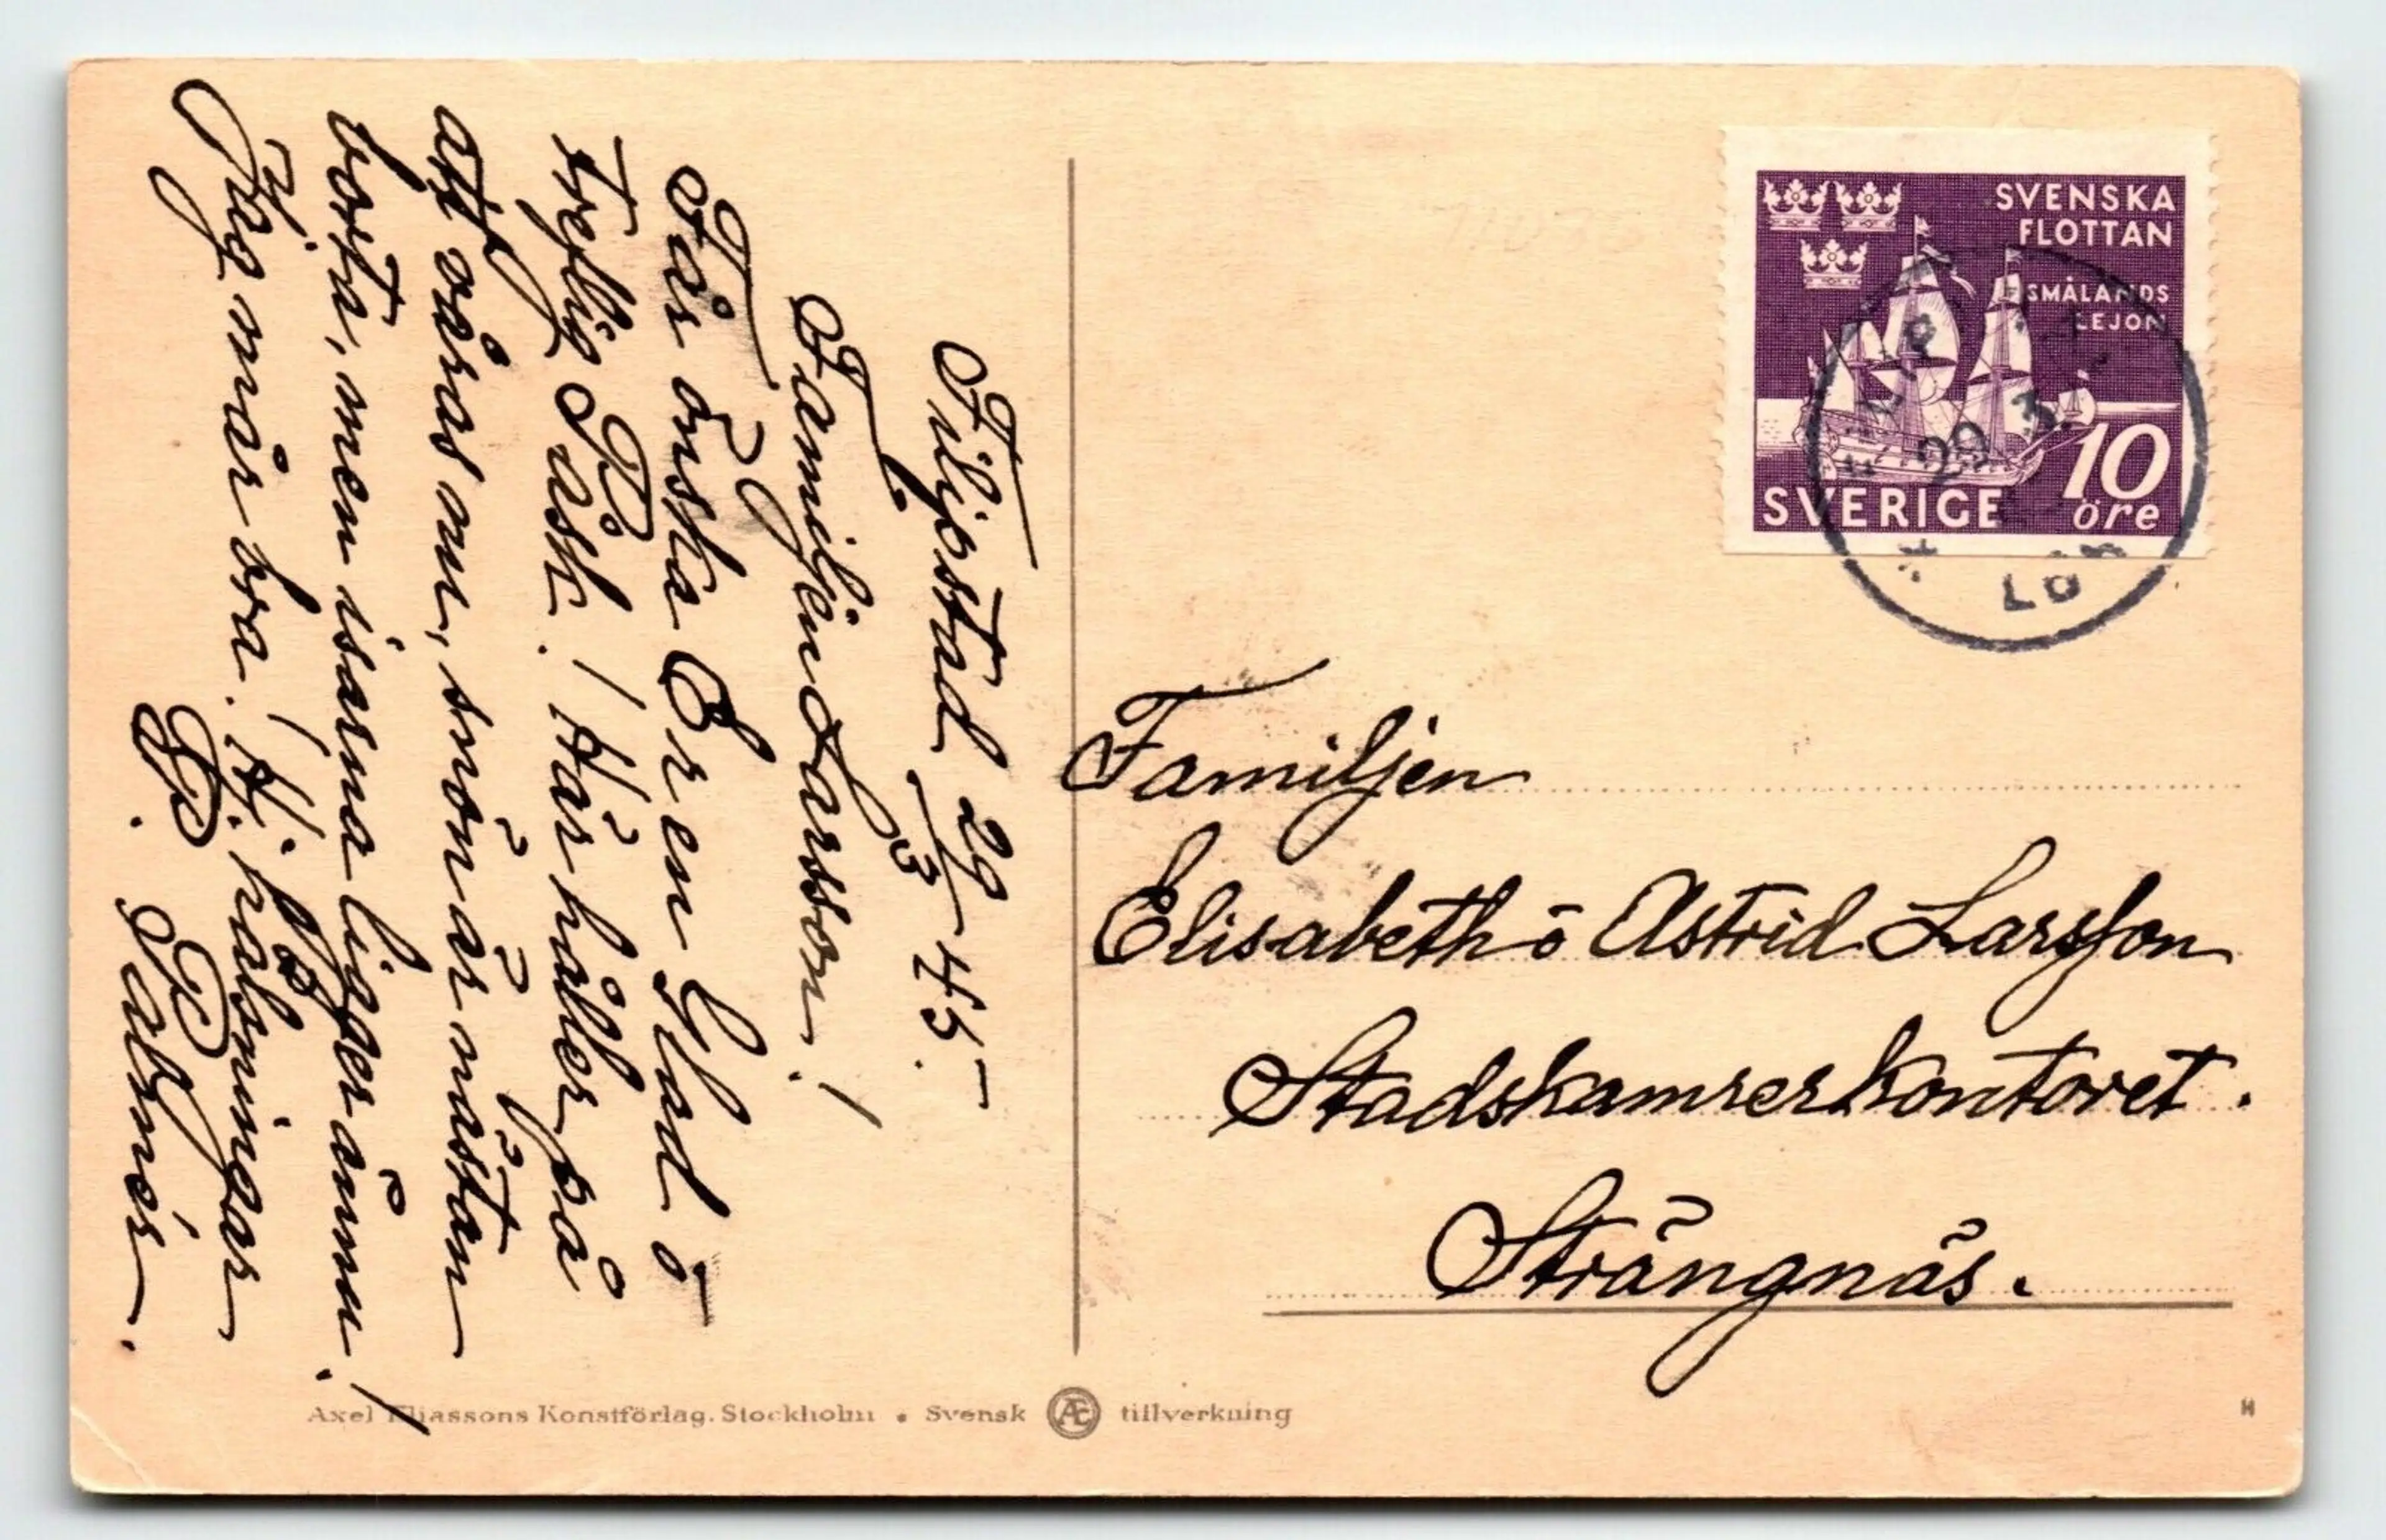 Filipstad 29/3 45.
Familjen Larsson!
Får önska Er en Glad ō
treflig Påsk! Här håller på
att våras om, snön är nästan
borta, men isarna ligger ännu!
Jag mår bra! Hj. hälsningar
P. Palmér.
SVENSKA
FLOTTAN
SMÅLANDS
LEJON
10
SVERIGE öre
29 3
Familjen
Elisabeth ō Astrid Larsson
Stadskamrerkontoret.
Strängnäs.
Axel Eliassons Konstförlag. Stockholm • Svensk Æ tillverkning
H